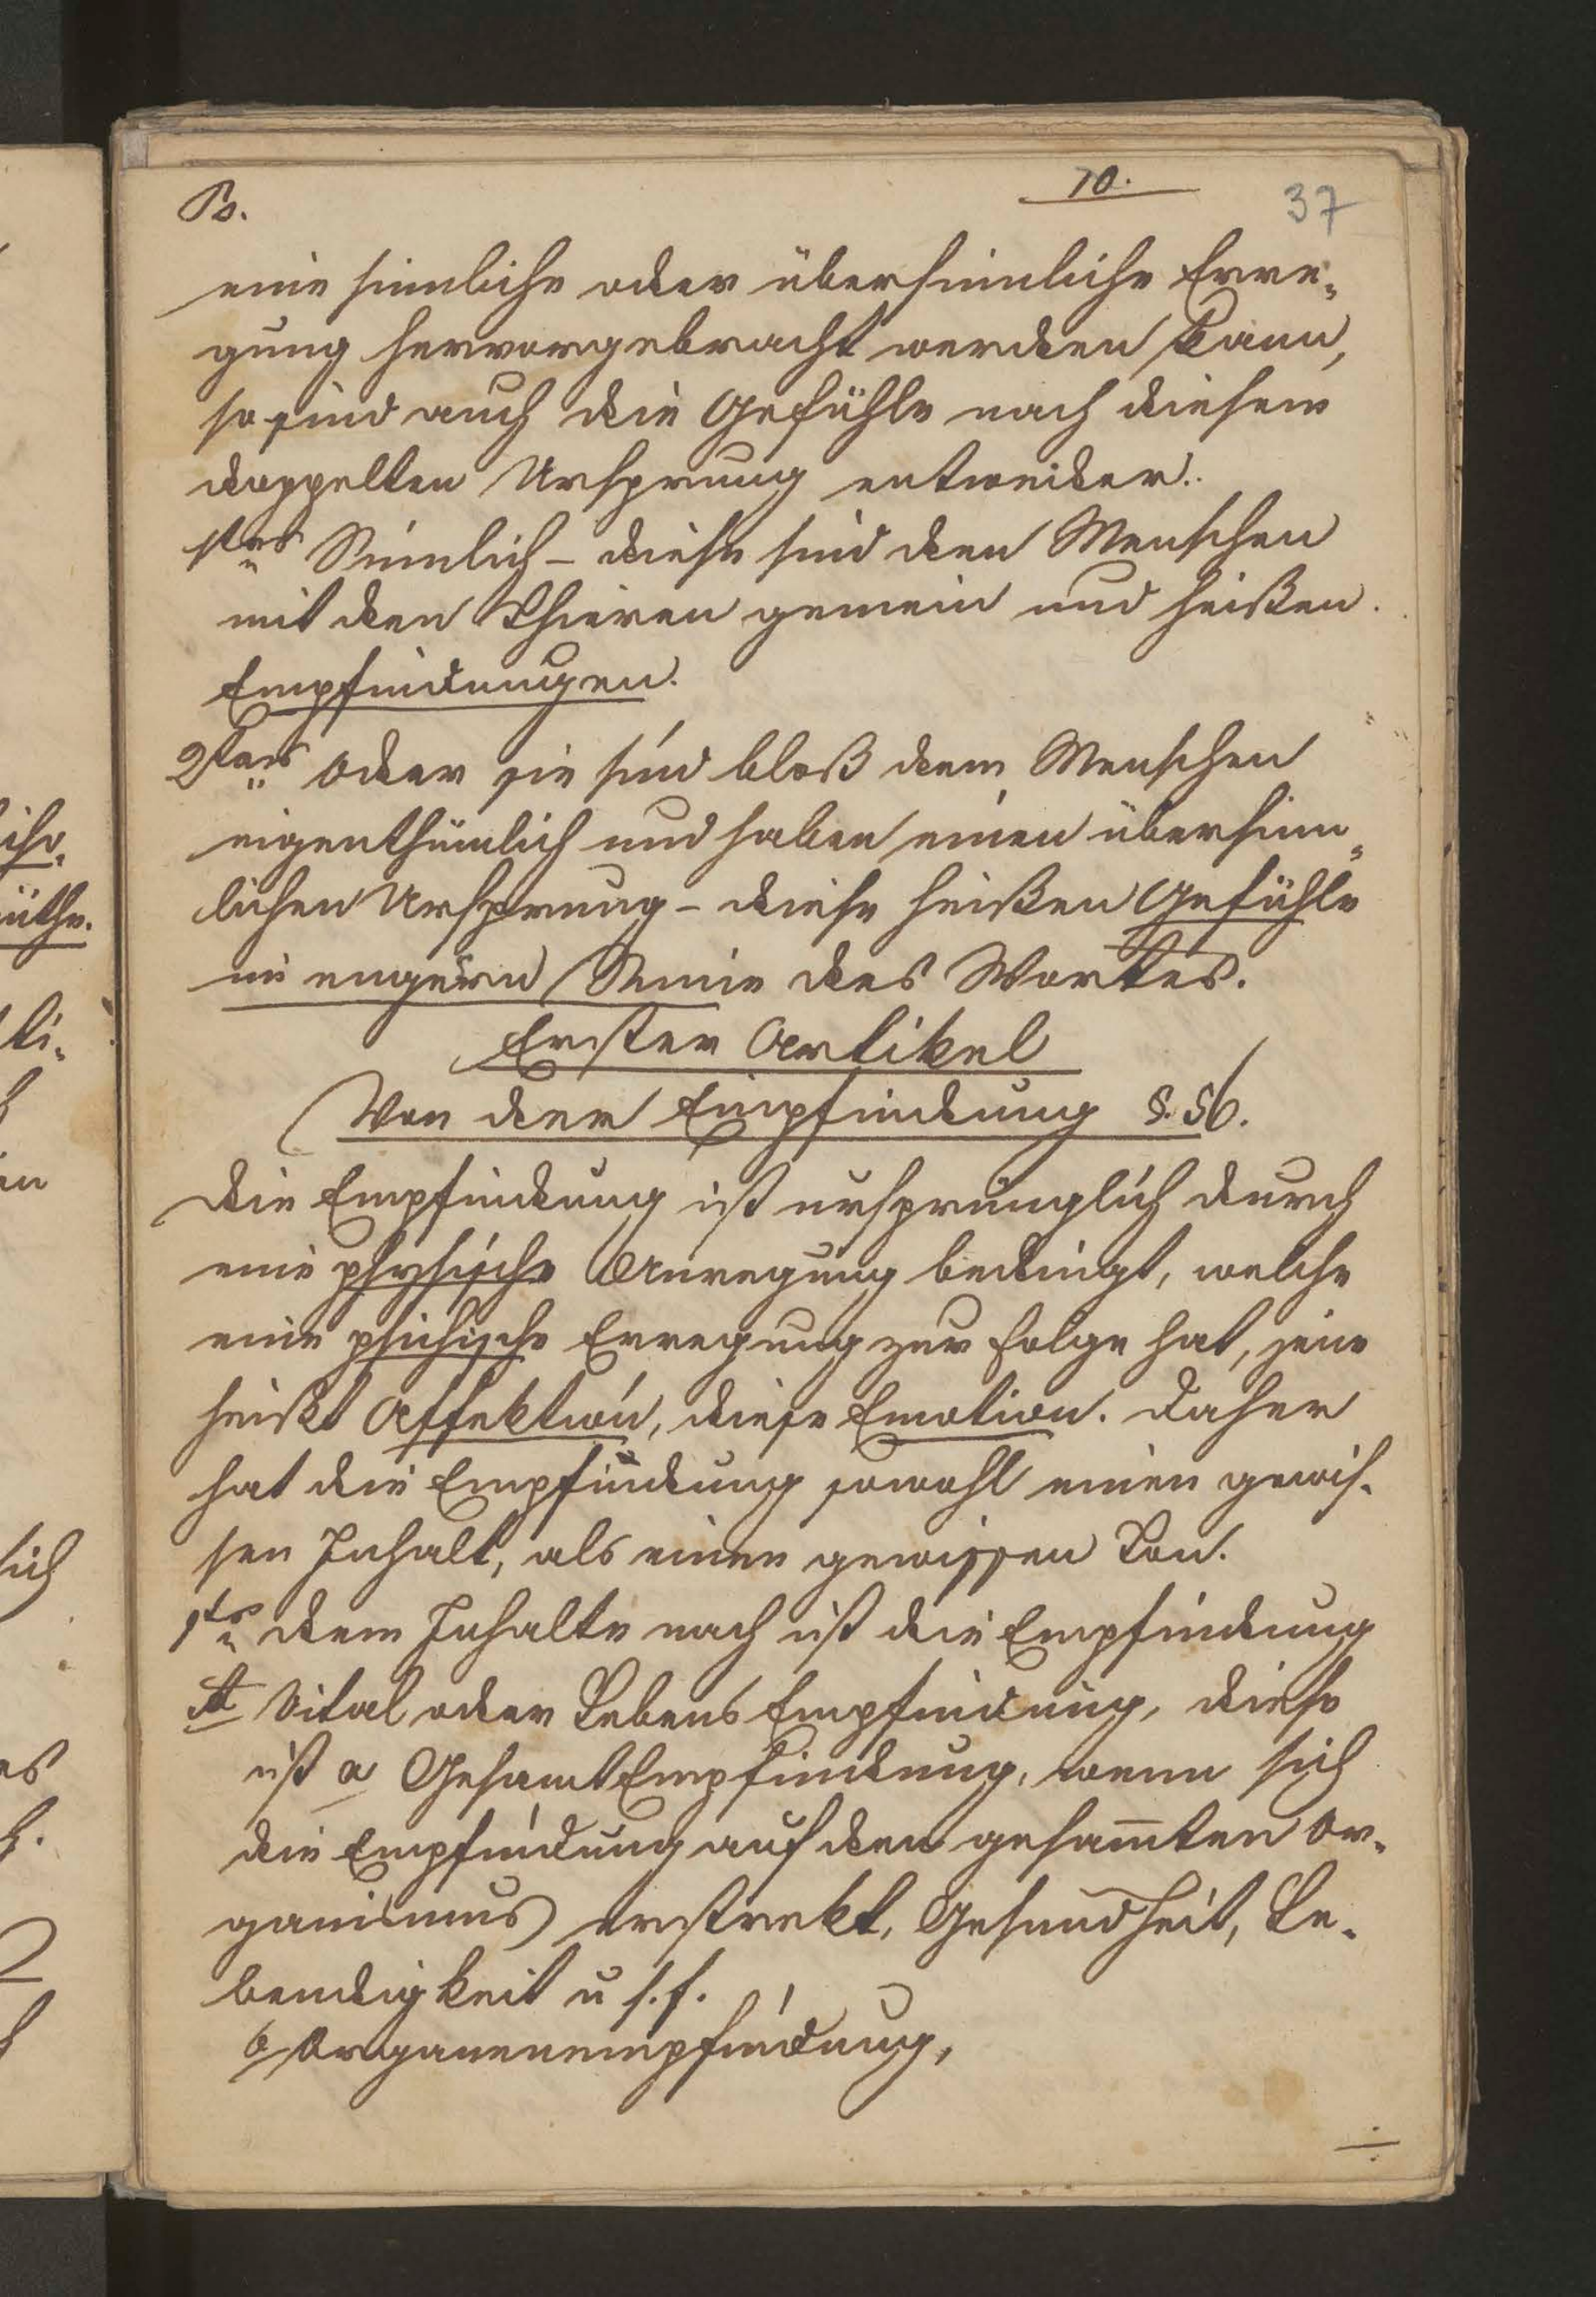 Ps.
70.
37
eine sinnliche oder übersinnliche Erre-
gung hervorgebracht werden kann,
so sind auch die Gefühle nach diesem
doppelten Ursprung entweder.
1tens Sinnlich – diese sind den Menschen
mit den Thieren gemein und heißen.
Empfindungen.
2tens oder sie sind bloß dem Menschen
eigenthümlich und haben einen übersinn-
lichen Ursprung – diese heißen Gefühle
im engern Sinne des Wortes.
Erster Artikel
Von der Empfindung §. 56.
Die Empfindung ist ursprünglich durch
eine physische Anregung bedingt, welche
eine psichische Erregung zur Folge hat, jene
heißt Affektion, diese Emotion. Daher
hat die Empfindung sowohl einen gewis-
sen Inhalt, als einen gewissen Ton.
1tens dem Inhalte nach ist die Empfindung
A Vital oder Lebens Empfindung, diese
ist a Gesamt Empfindung, wenn sich
die Empfindung auf den gesam̄ten Or-
ganismus erstrekt, Gesundheit, Le-
bendigkeit u s. f.
b Organenempfindung,